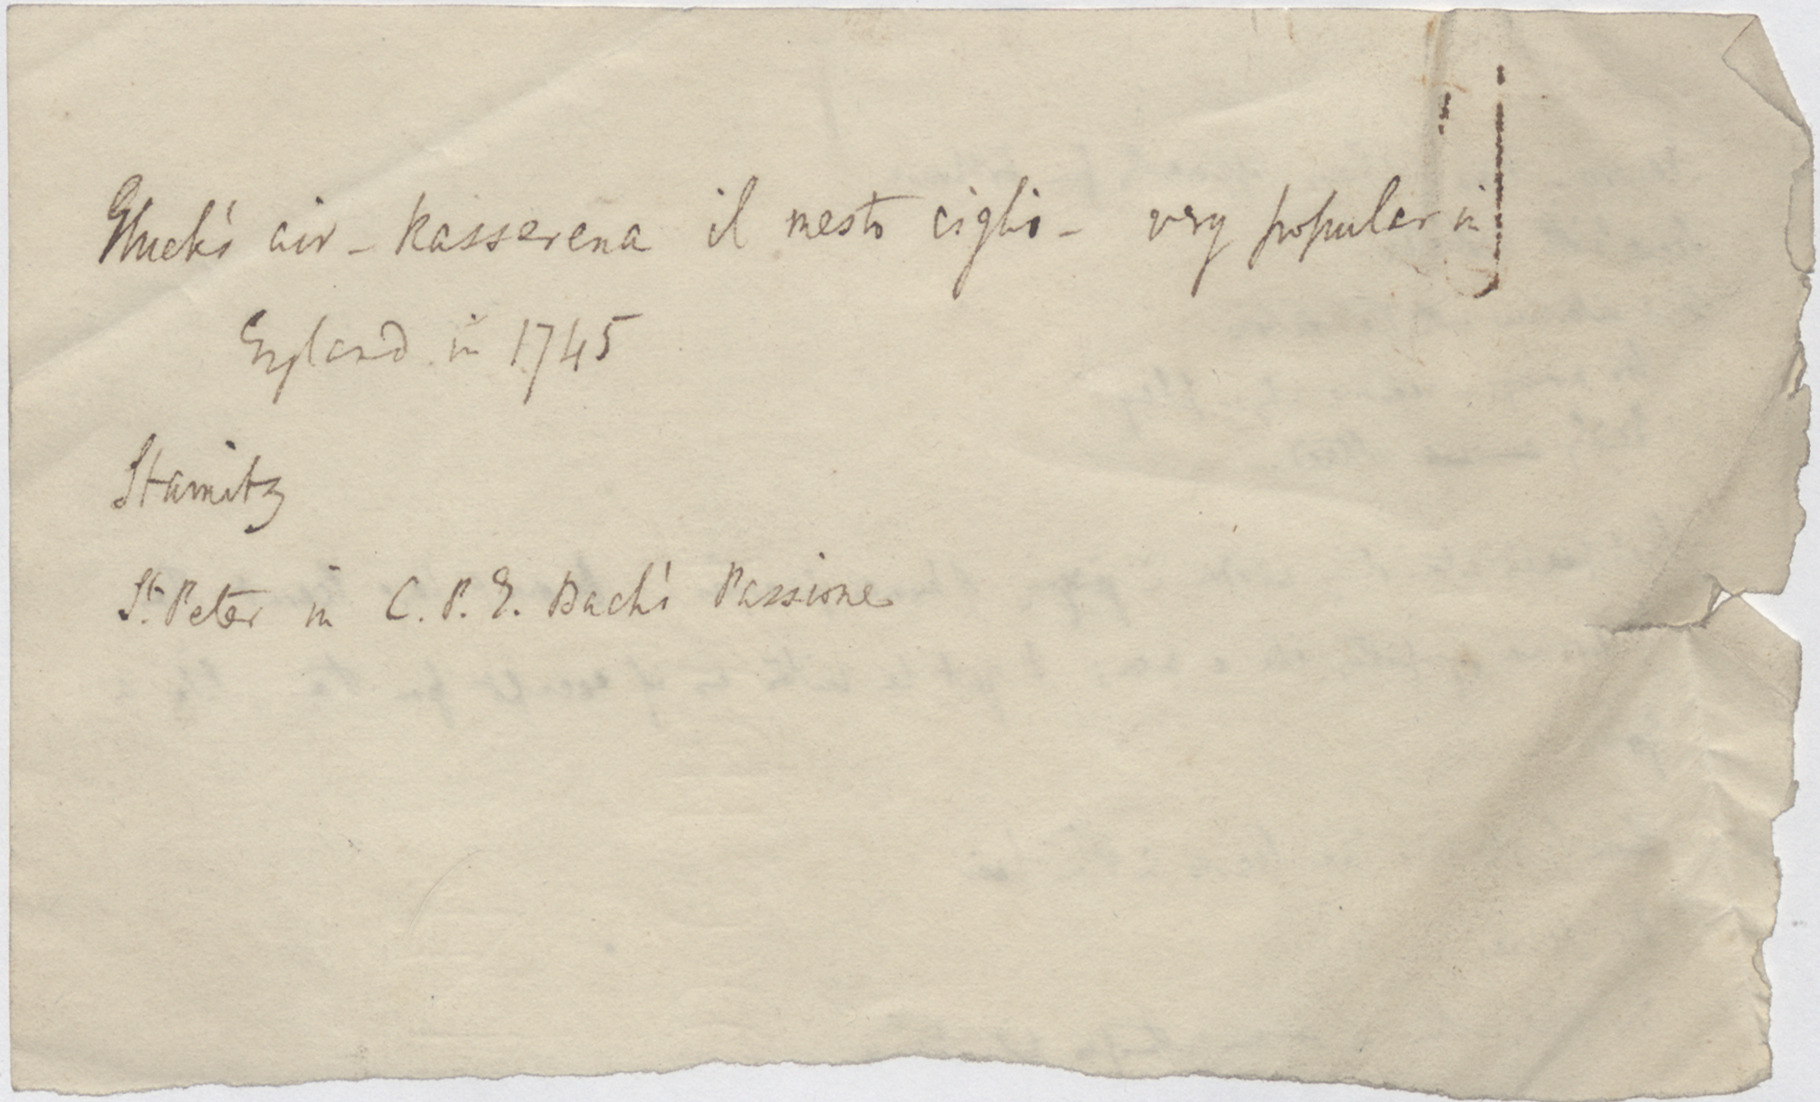 Gluck's air - Rasserena il mesto ciglio - very popular in
England in 1745
Stamitz
St. Peter in C. P. E. Bach's Passione